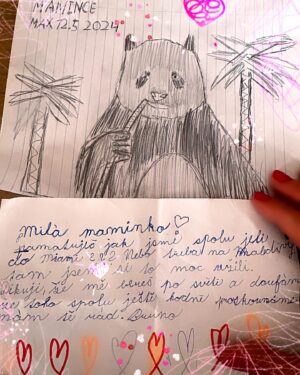 MAMINCE
MAX 12.5 2024
Milá maminko!
Pamatuješ jak jsme spolu jeli
do Miami 2x? Nebo třeba na
tam jsem si to moc užili.
Děkuji že mě bereš po světě a doufám
že toho spolu ještě hodně procestujeme
mám tě rád. Bruno